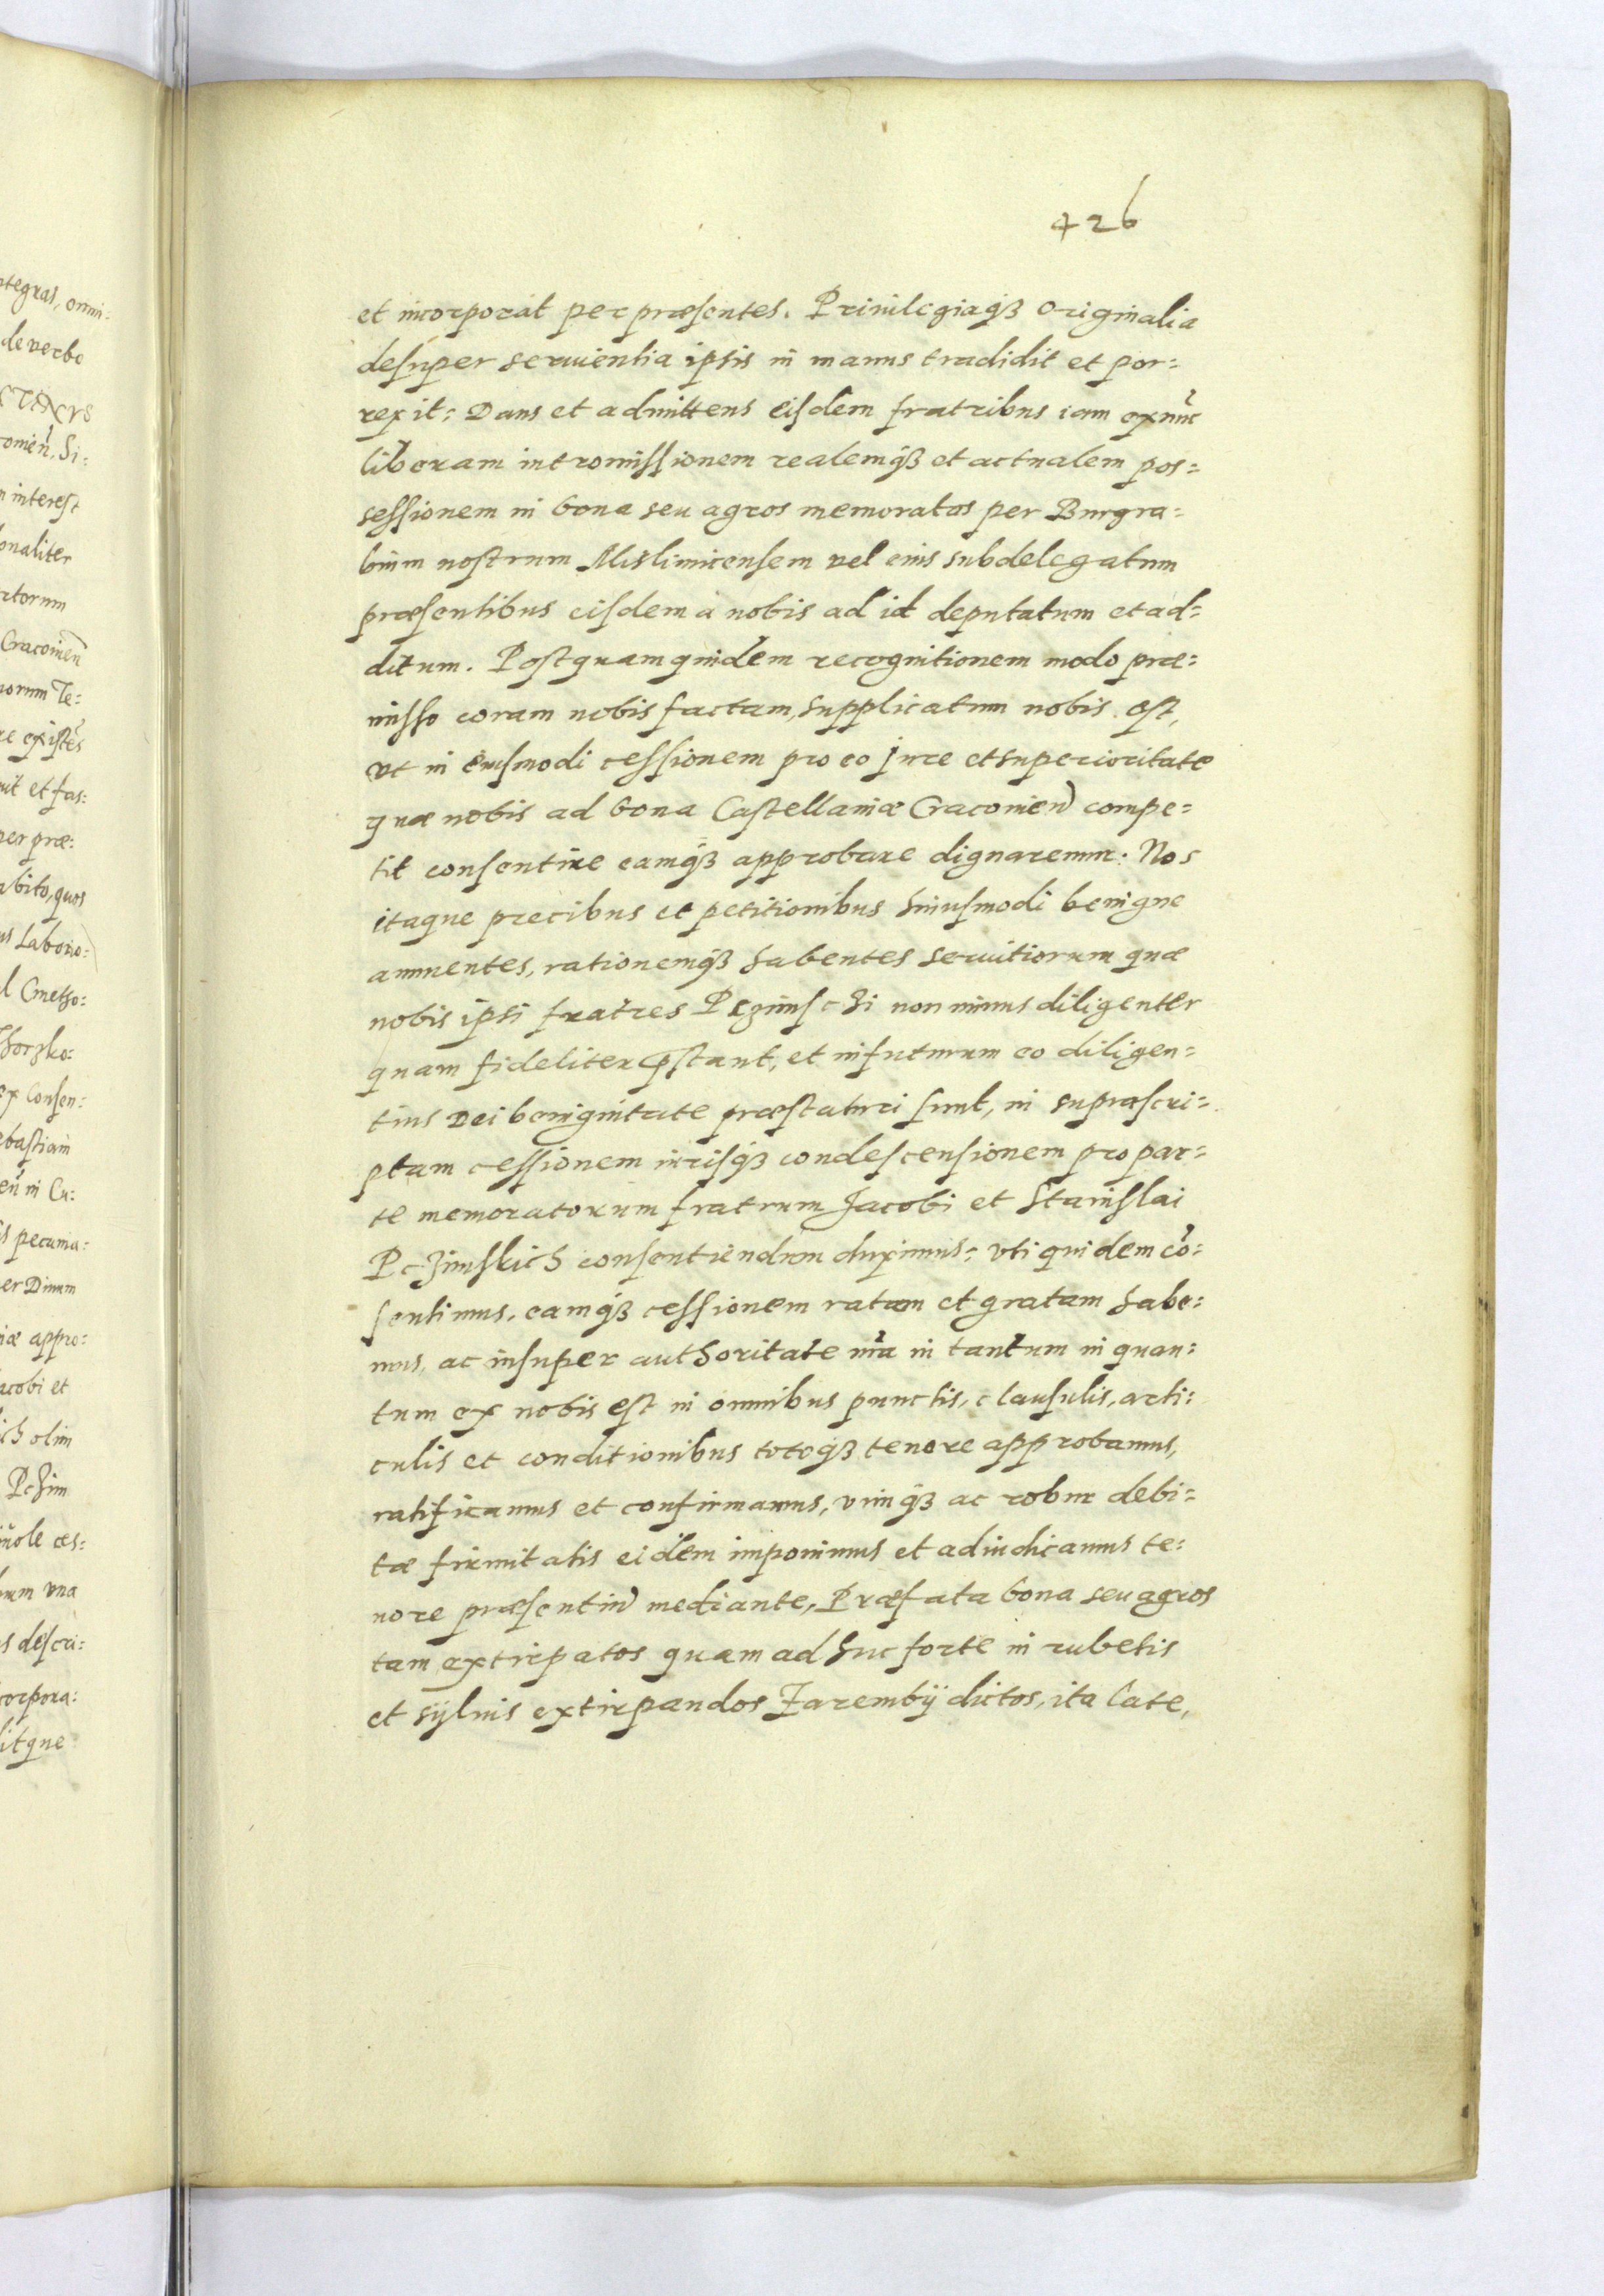 426
et incorporat per præsentes. Priuilegiaqȝ originalia
desuper seruientia ipsis in manus tradidit et por=
rexit: Dans et admittens eisdem fratribus iam exnũc
liberam intromissionem realemqȝ et actualem pos=
sessionem in bona seu agros memoratos per Burgra=
bium nostrum Mislimicensem vel eius subdelegatum
præsentibus eisdem a nobis ad id deputatum et ad=
ditum. Postquam quidem recognitionem modo præ=
misso coram nobis factam, supplicatum nobis est,
vt in eiusmodi cessionem pro eo jure et superioritate
quæ nobis ad bona Castellaniæ Cracouien̄ compe=
tit consentire eamqȝ approbare dignaremur. Nos
itaque precibus et petitionibus huiusmodi benigne
annuentes, rationemqȝ habentes seruitiorum quæ
nobis ipsi fratres Pczimschi non minus diligenter
quam fideliter p̃stant, et in futurum eo diligen=
tius Dei benignitate præstaturi sunt, in suprascri=
ptam cessionem iurisqȝ condescensionem pro par=
te memoratorum fratrum Jacobi et Stanislai
Pczimskich consentiendum duximus: vti quidem cõ=
sentimus, eamqȝ cessionem ratam et gratam habe=
mus, ac insuper authoritate nr̃a in tantum in quan=
tum ex nobis est in omnibus punctis, clausulis, arti=
culis et conditionibus totoqȝ tenore approbamus,
ratificamus et confirmamus, vimqȝ ac robur debi=
tæ firmitatis eidem imponimus et adiudicamus te=
nore præsentiū mediante, Præfata bona seu agros
tam extirpatos quam adhuc forte in rubetis
et syluis extirpandos Zarembÿ dictos, ita late,
tegras, omni=
de verbo
onaliter
Cracouien̄
e existẽs
nit et fas:
per præ:
bito, quos
ex consen:
s pecunia:
iæ appro:
acobi et
ch olim
Pczim
um vna
s descri:
corpora:
litque